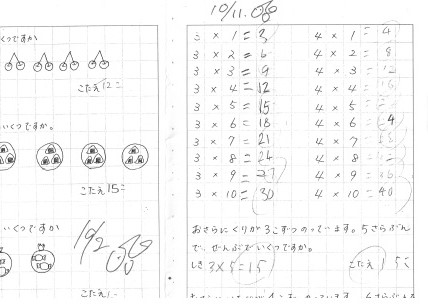 くつですか
こたえ12こ
いくつですか。
こたえ15こ
いくつですか
10/2
10/11.
3 × 1 = 3
3 × 2 = 6
3 × 3 = 9
3 × 4 = 12
3 × 5 = 15
3 × 6 = 18
3 × 7 = 21
3 × 8 = 24
3 × 9 = 27
3 × 10 = 30
4 × 1 = 4
4 × 2 = 8
4 × 3 = 12
4 × 4 = 16
4 × 5 =
4 × 6 = 24
4 × 7 =
4 × 8 =
4 × 9 = 36
4 × 10 = 40
おさらにくりが3こずつのっています。5さらぶん
で、ぜんぶでいくつですか。
しき 3×5=15
こたえ 15こ